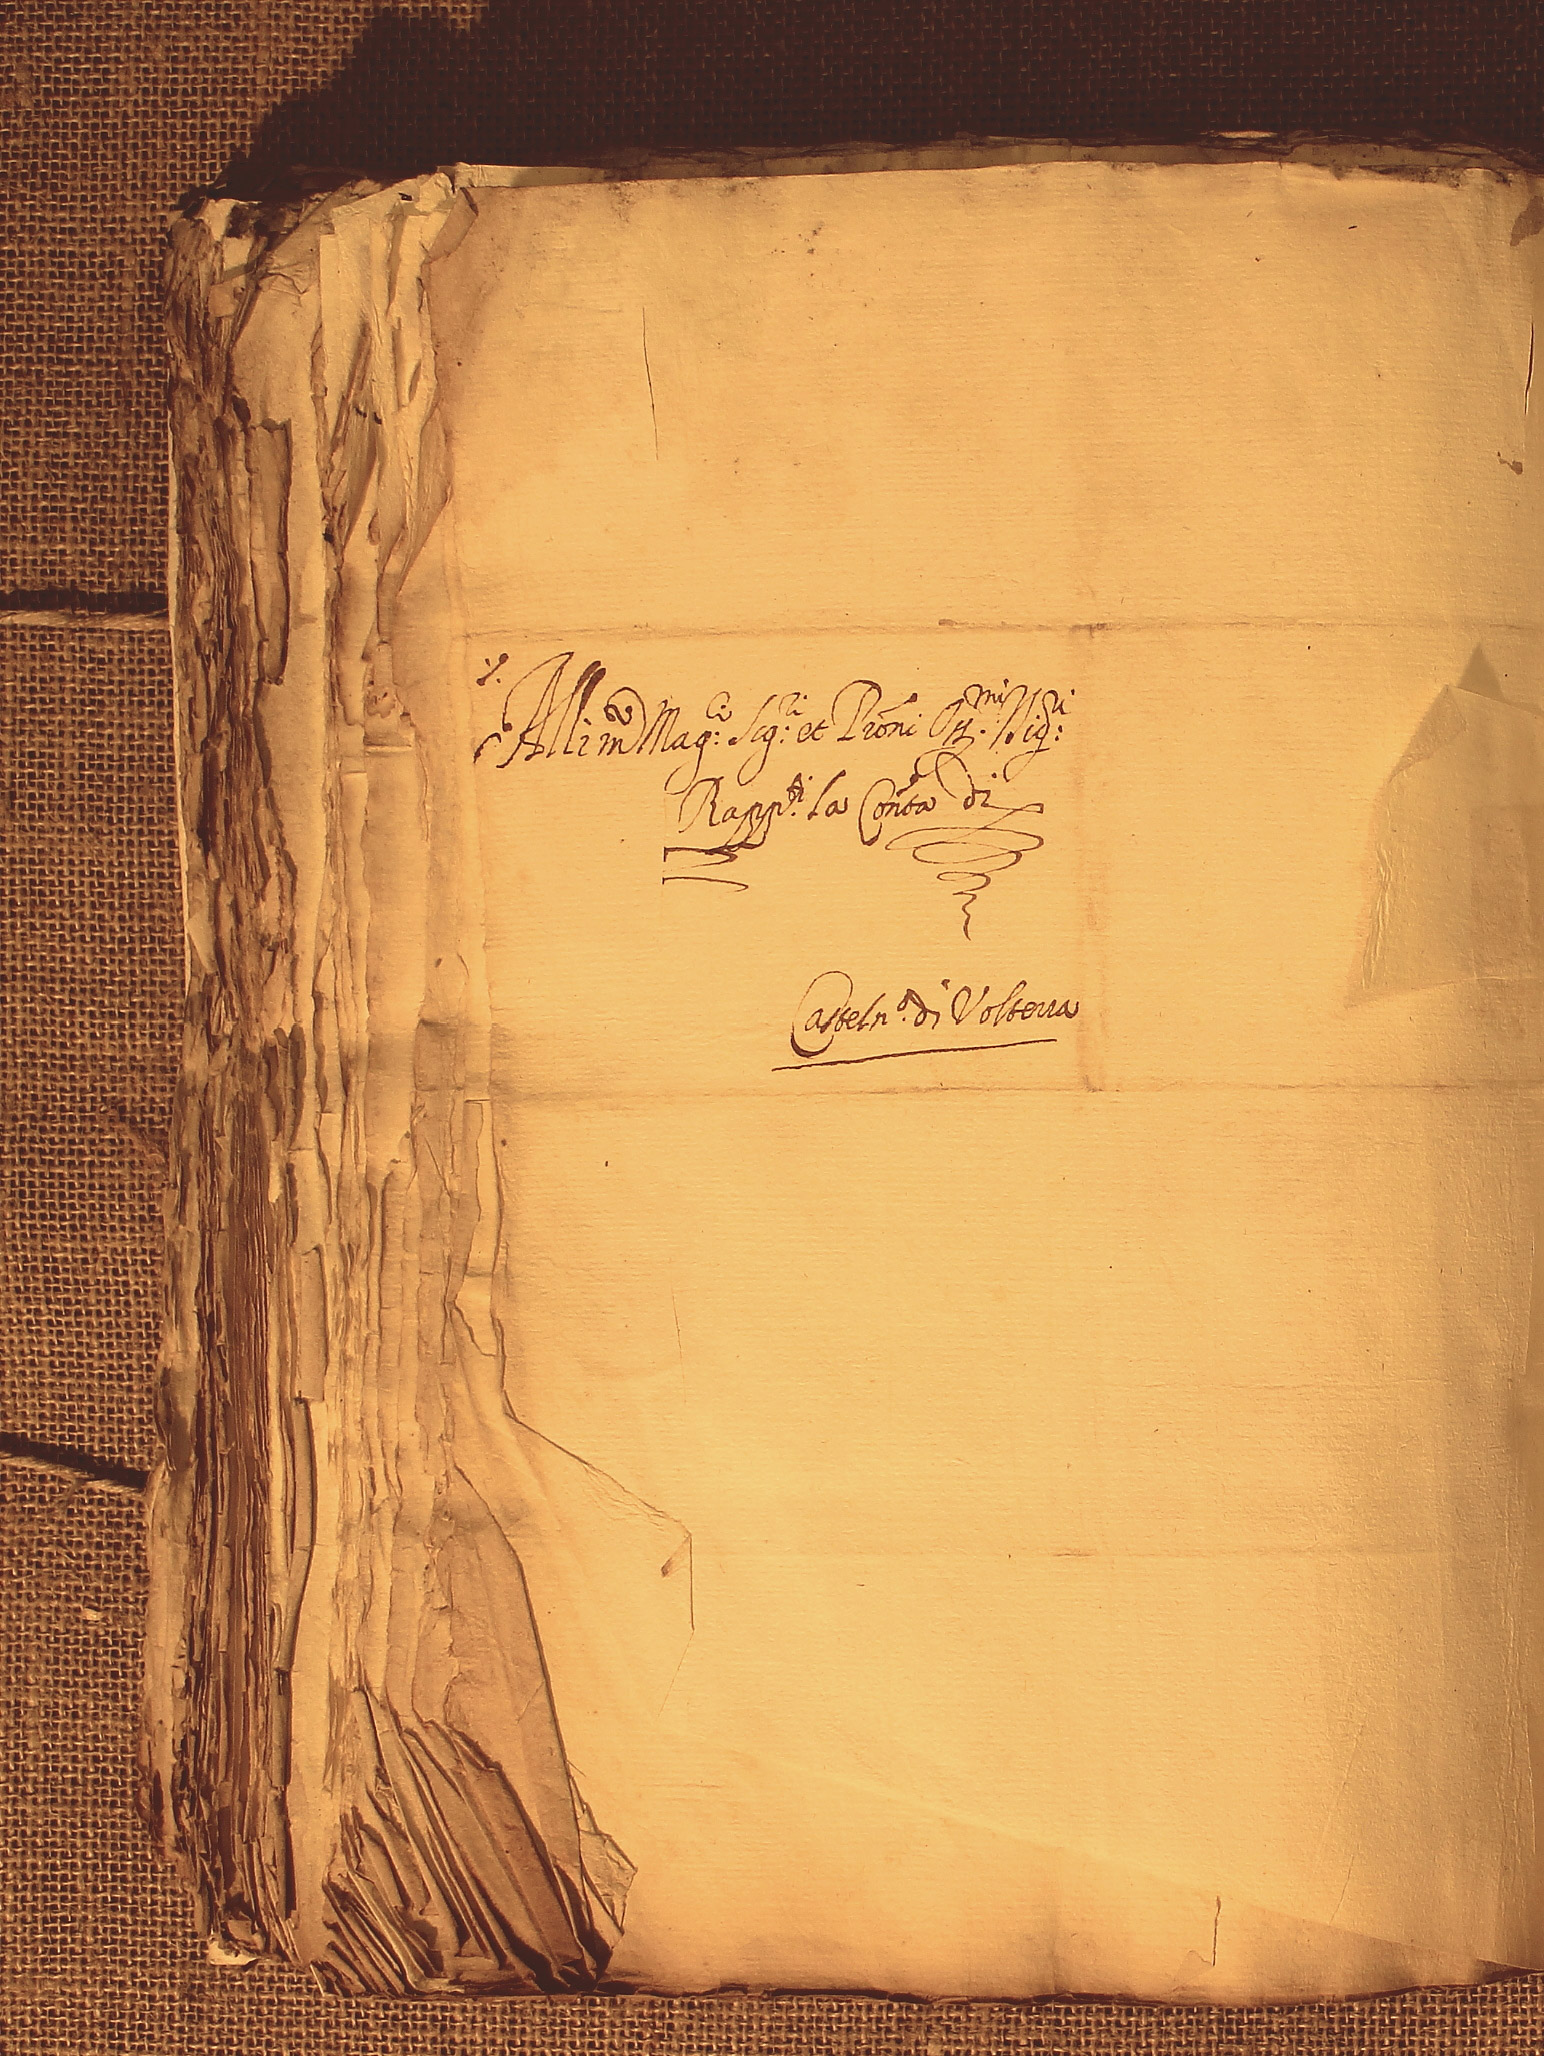 Alli m.to Mag.ci Sig.ri et Pròni Oss.mi Sig.ri
Rapp.ti la Com̃ta di
Casteln.o di Volterra